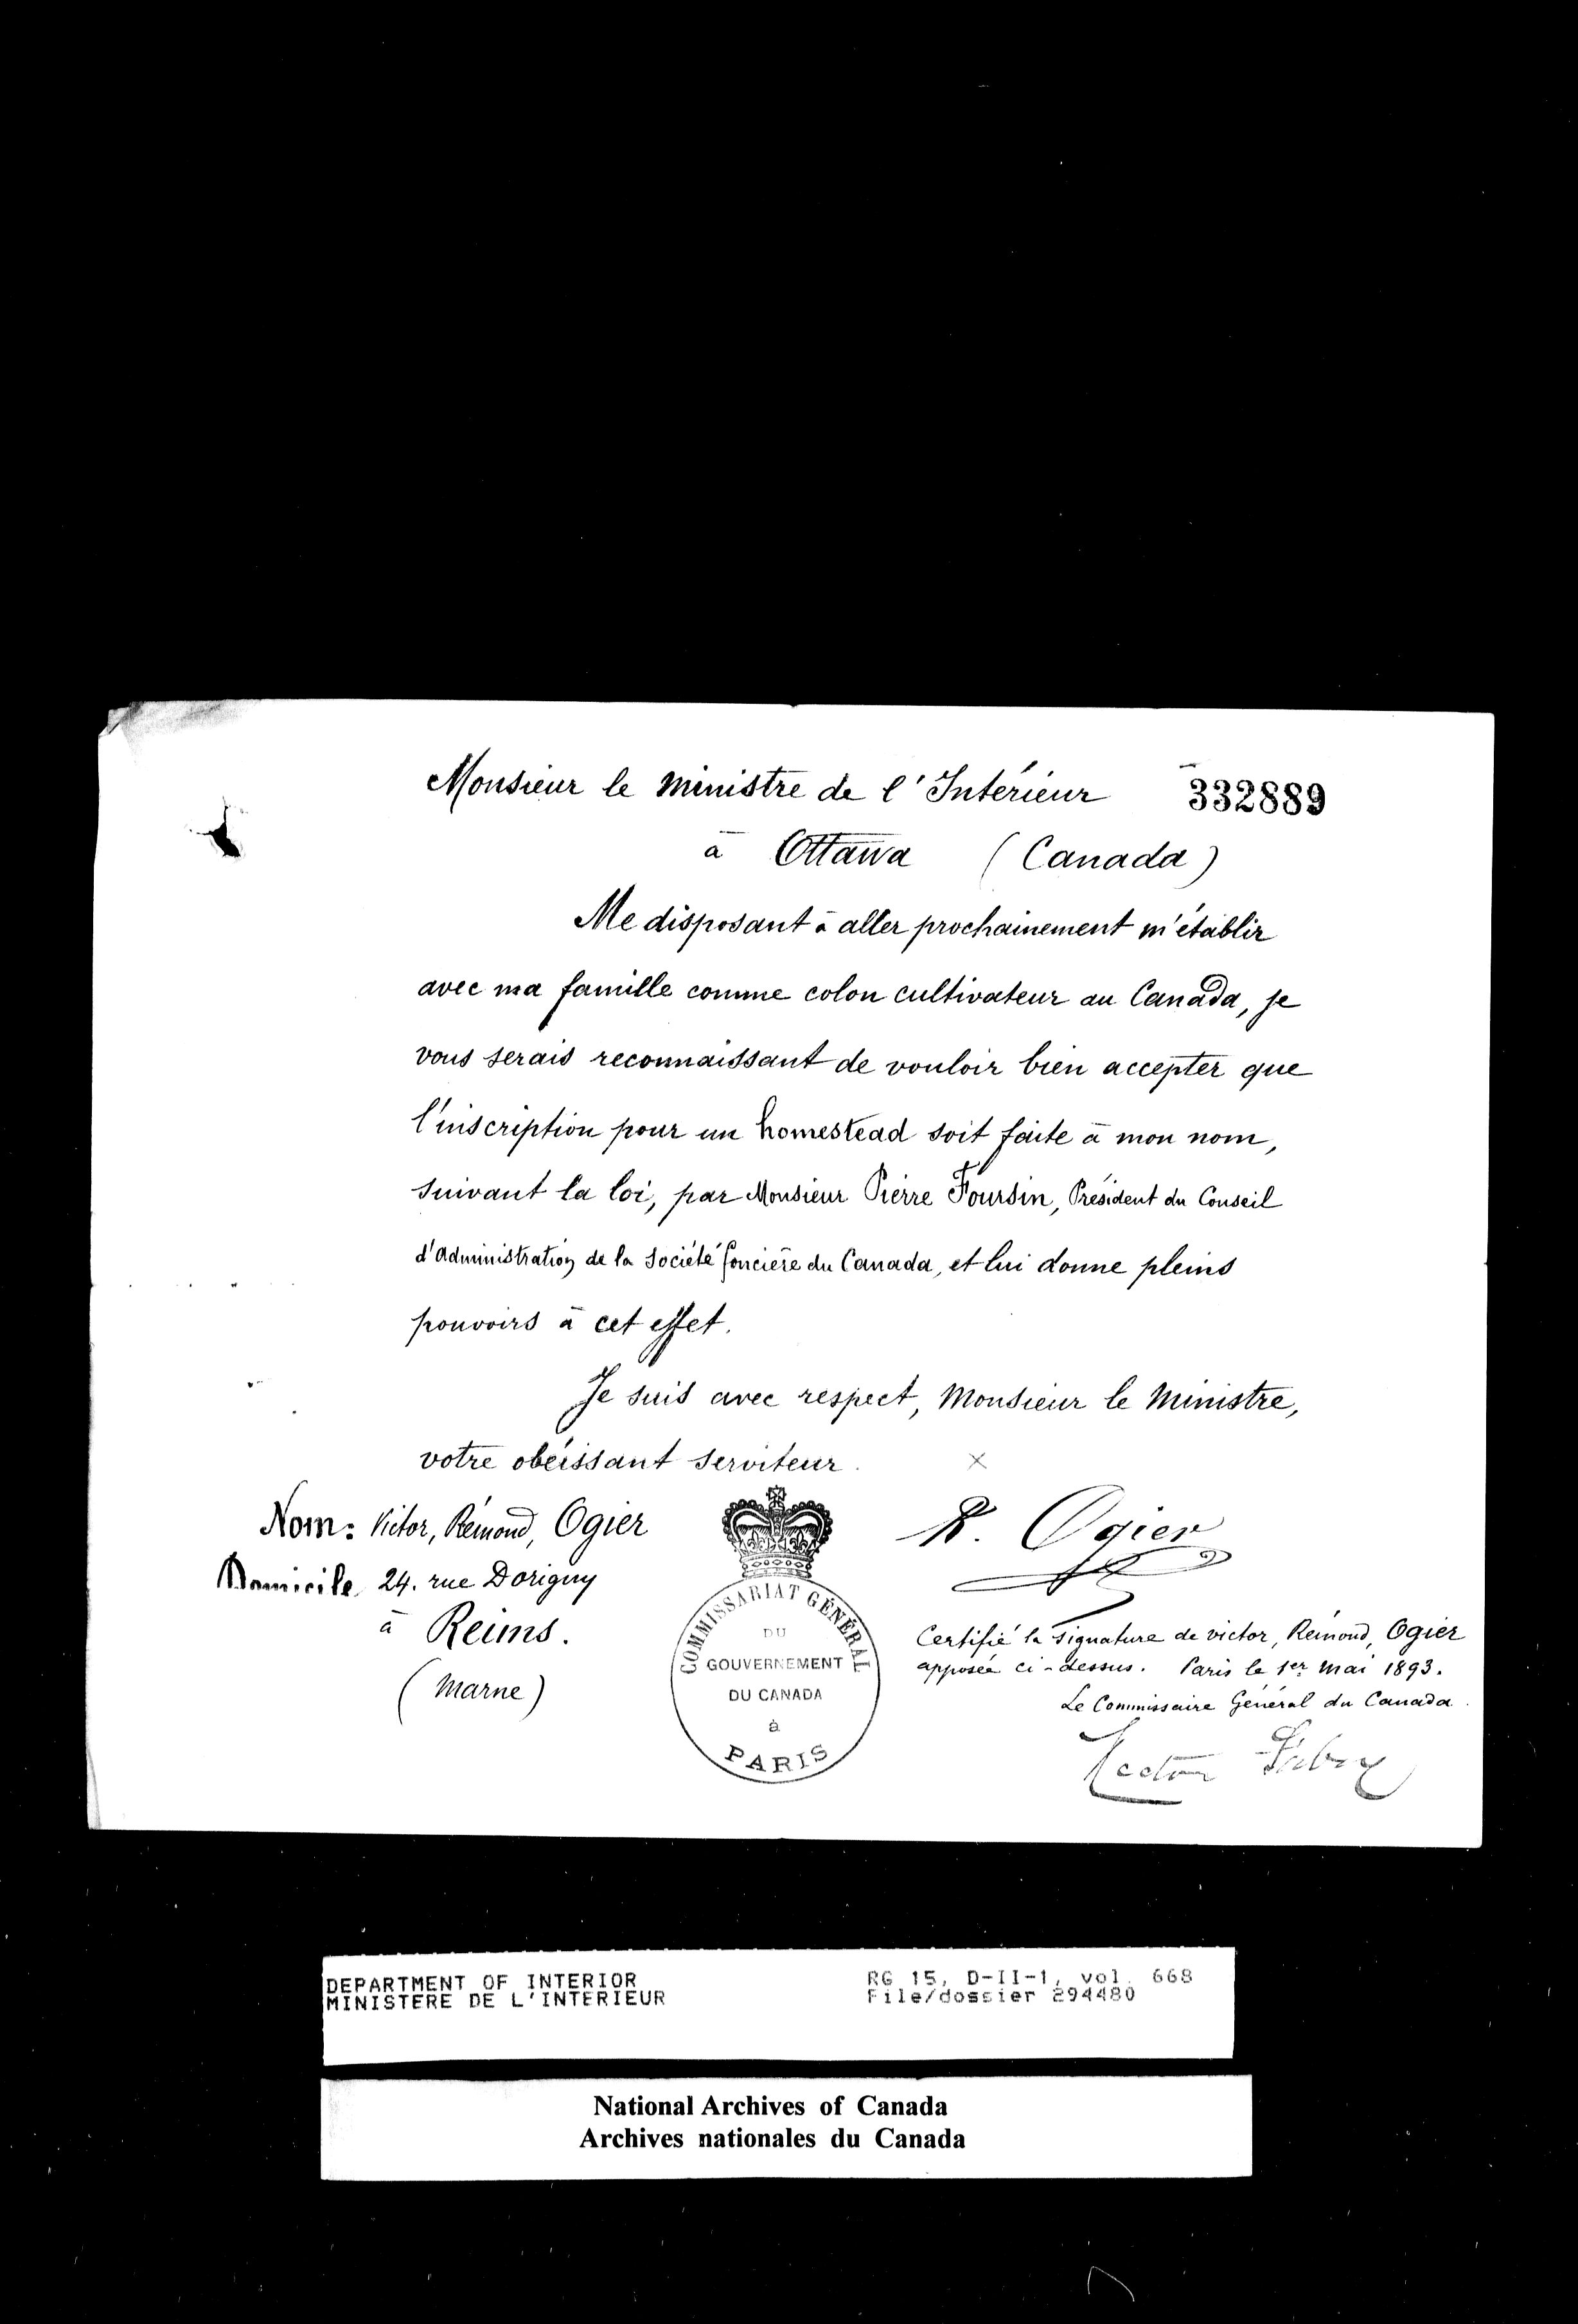 Monsieur le Ministre de l'Intérieur 332889
à Ottawa (Canada)
Me disposant à aller prochainement m'établir
avec ma famille comme colon cultivateur au Canada, je
vous serais reconnaissant de vouloir bien accepter que
l'inscription pour un homestead soit faite à mon nom,
suivant la loi, par Monsieur Pierre Foursin, Président du Conseil
d'Administration de la Société foncière du Canada, et lui donne pleins
pouvoirs à cet effet.
Je suis avec respect, Monsieur le Ministre,
votre obéissant serviteur.
Nom: Victor, Rémond, Ogier
Domicile 24. rue Dorigny
à Reims.
(Marne)
COMMISSARIAT GÉNÉRAL
DU
GOUVERNEMENT
DU CANADA
à
PARIS
R. Ogier
Certifié la signature de victor, Rémond, Ogier
apposée ci-dessus. Paris le 1er Mai 1893.
Le Commissaire Général du Canada.
Hector Fabre
DEPARTMENT OF INTERIOR RG 15, D-II-1, vol. 668
MINISTERE DE L'INTERIEUR File/dossier 294480
National Archives of Canada
Archives nationales du Canada